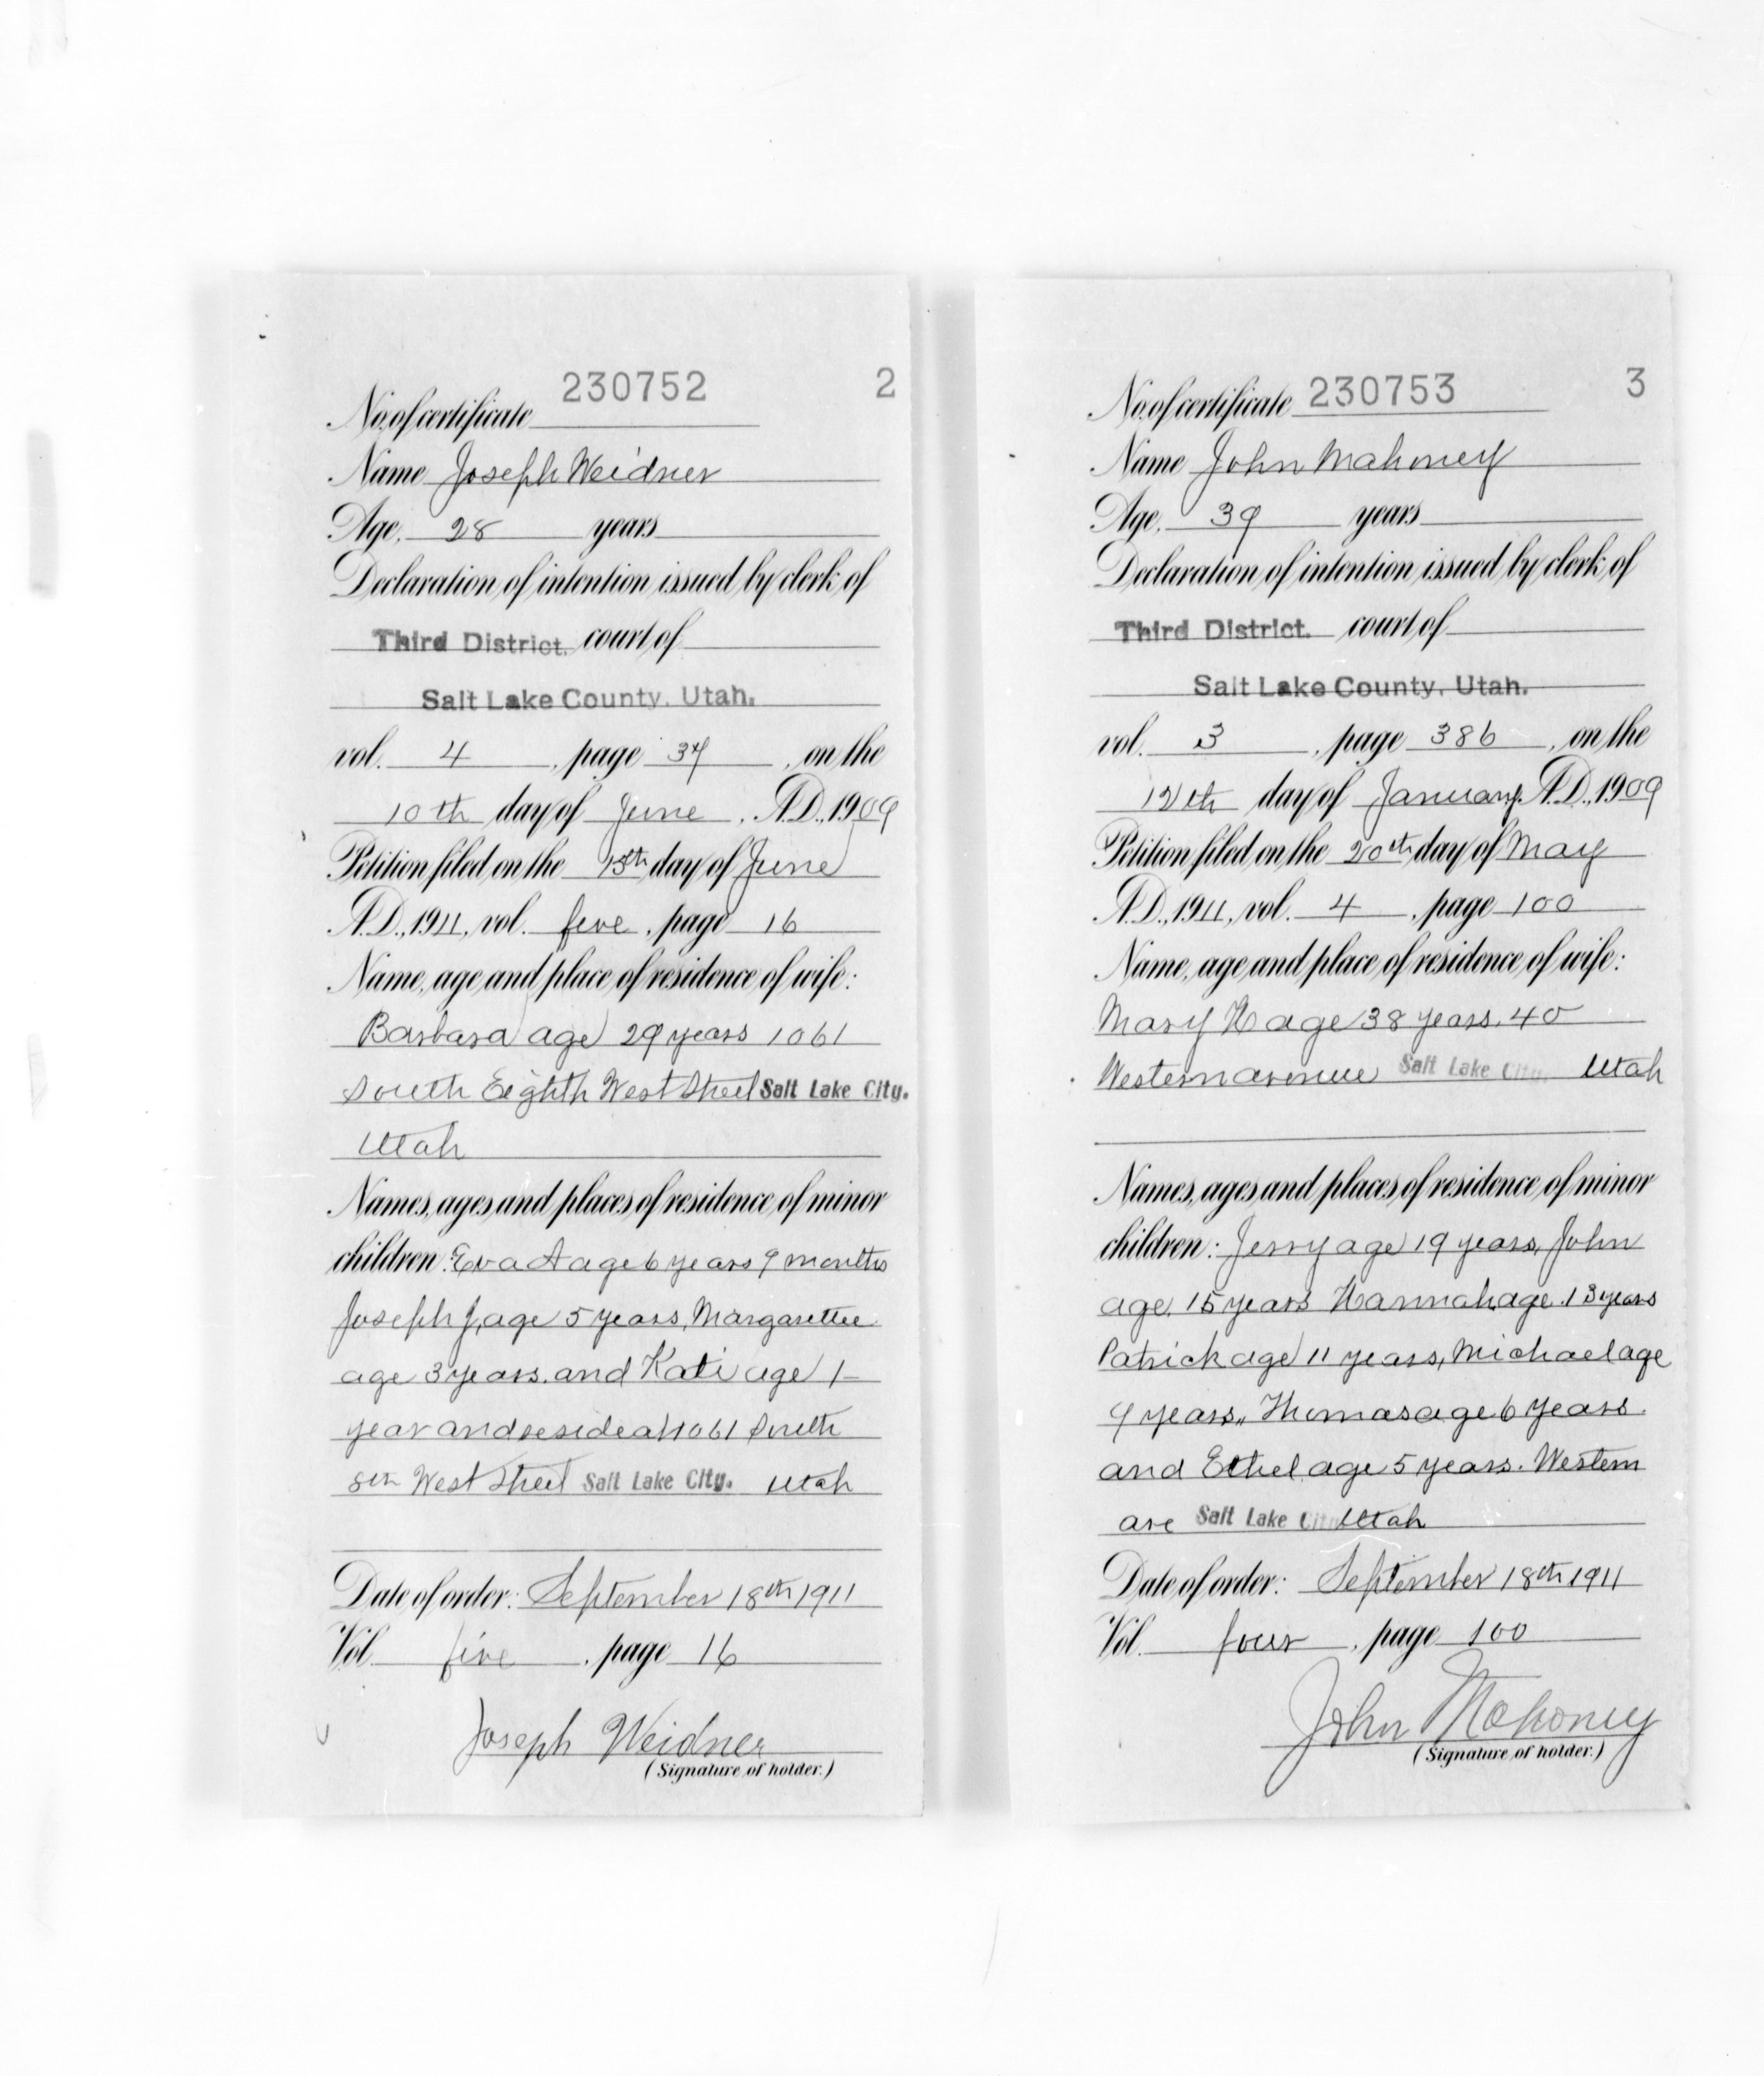 230752 2
No. of certificate
Name Joseph Weidner
Age, 28 years
Declaration of intention issued by clerk of
Third District. court of
Salt Lake County, Utah.
vol. 4, page 37, on the
10th day of June, A.D., 1909
Petition filed on the 15th day of June
A.D., 1911, vol. five, page 16
Name, age and place of residence of wife:
Barbara age 29 years 1061
South Eighth West Street Salt Lake City.
Utah
Names, ages and places of residence of minor
children: Eva A age 6 years 9 months
Joseph J, age 5 years, Margarettee
age 3 years. and Kati age 1
year and reside at 1061 South
8th West Street Salt Lake City. Utah
Date of order: September 18th 1911
Vol. five, page 16
Joseph Weidner
(Signature of holder.)
230753 3
No. of certificate
Name John Mahoney
Age, 39 years
Declaration of intention issued by clerk of
Third District. court of
Salt Lake County, Utah.
vol. 3, page 386, on the
12th day of January, A.D., 1909
Petition filed on the 20th day of May
A.D., 1911, vol. 4, page 100
Name, age and place of residence of wife:
Mary H age 38 years. 40
Western avenue Salt Lake City. Utah
Names, ages and places of residence of minor
children: Jerry age 19 years, John
age 15 years Hannah, age 13 years
Patrick age 11 years, Michael age
9 years, Thomas age 6 years.
and Ethel age 5 years. Western
ave Salt Lake City Utah
Date of order: September 18th 1911
Vol. four, page 100
John Mahoney
(Signature of holder.)